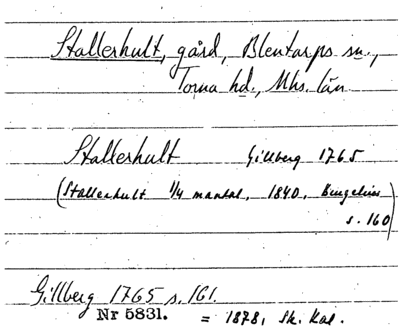 Stallerhult, gård, Blentarps sn.,
Torna hd., Mhs. län
Stallerhult Gillberg 1765
(Stallerhult 1/4 mantal, 1840, Bengelius
s. 160)
Gillberg 1765 s. 161.
Nr 5831. = 1878, Sk. Kal.